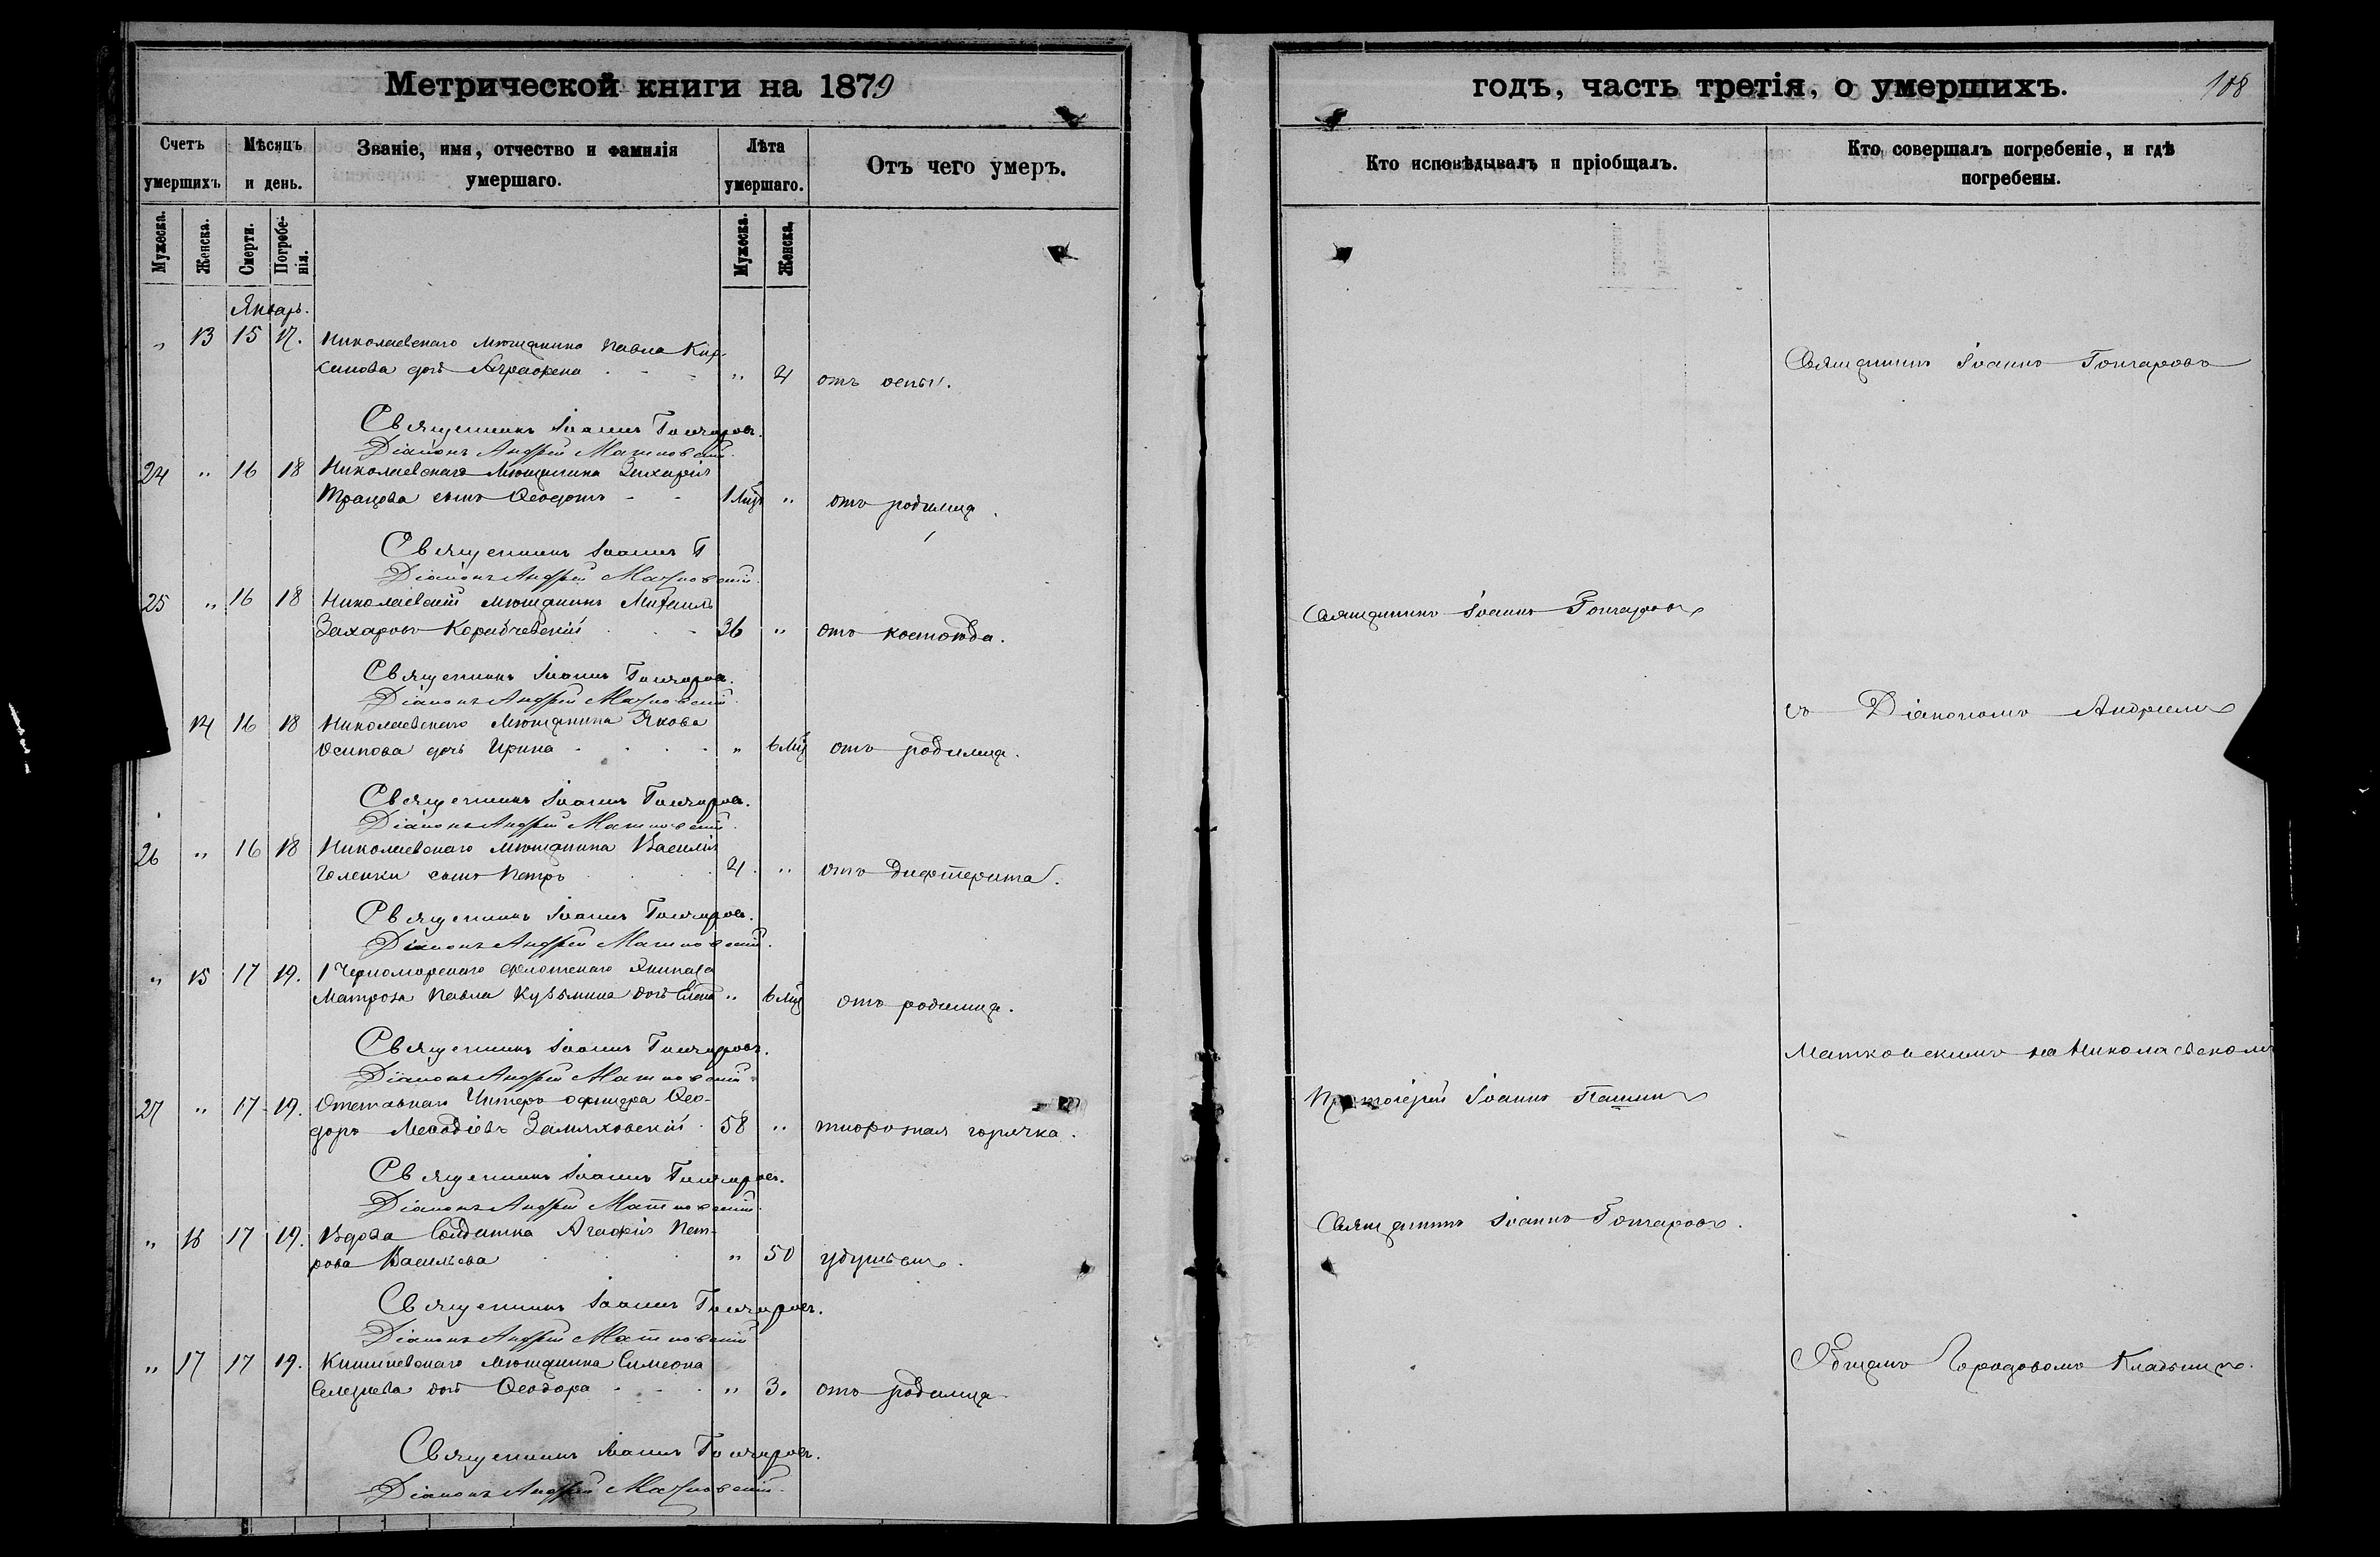 Метрической книги на 1879
Счетъ умершихъ.
Мѣсяцъ и день.
Званіе, имя, отчество и фамилія умершаго.
Лѣта умершаго.
Отъ чего умеръ.
Мужеска.
Женска.
Смерти.
Погребе-
нія.
Мужеска.
Женска.
Январь.
" 13 15 17. Николаевскаго мѣщанина Павла Кир-
санова дочь Агрофена " 4 отъ оспы.
Священникъ Іоаннъ Гончаровъ.
Діаконъ Андрей Матковскій.
24 " 16 18 Николаевскаго мѣщанина Захарія
сынъ Ѳеодотъ 1 мцъ " отъ родимца.
Священникъ Іоаннъ Г
Діаконъ Андрей Матковскій.
25 " 16 18 Николаевскій мѣщанинъ Михаилъ
Захаровъ Корабчевскій 36 " отъ костоѣда.
Священникъ Іоаннъ Гончаровъ.
Діаконъ Андрей Матковскій.
14 16 18 Николаевскаго мѣщанина Якова
Осипова дочь Ирина " 6 мцъ отъ родимца.
Священникъ Іоаннъ Гончаровъ.
Діаконъ Андрей Матковскій.
26 " 16 18 Николаевскаго мѣщанина Василія
Голенки сынъ Петръ 4. " отъ дифтерита.
Священникъ Іоаннъ Гончаровъ.
Діаконъ Андрей Матковскій.
" 15 17 19. 1 Черноморскаго флотскаго Экипажа
Матроза Павла Кузьмина дочь Елена " 6 мцъ отъ родимца.
Священникъ Іоаннъ Гончаровъ.
Діаконъ Андрей Матковскій.
27 " 17 19. Отставнаго Унтеръ офицера Ѳео-
доръ Меѳодіевъ Замяховскій 58 " тифозная горячка.
Священникъ Іоаннъ Гончаровъ.
Діаконъ Андрей Матковскій.
" 16 17 19. Вдова Солдатка Агафія Пет-
рова Васильева " 50 удушьемъ.
Священникъ Іоаннъ Гончаровъ.
Діаконъ Андрей Матковскій
" 17 17 19. Кишиневскаго мѣщанина Симеона
Селезнева дочь Ѳеодора " 3. отъ родимца
Священникъ Іоаннъ Гончаровъ.
Діаконъ Андрей Матковскій.
годъ, часть третія, о умершихъ.
108
Кто исповѣдывалъ и пріобщалъ.
Кто совершалъ погребеніе, и гдѣ
погребены.
Священникъ Іоаннъ Гончаровъ
Священникъ Іоаннъ Гончаровъ
съ Діакономъ Андреемъ
Матковскимъ на Николаевскомъ
Протоіерей Іоаннъ
Священникъ Іоаннъ Гончаровъ.
Общемъ Городовомъ Кладбищѣ.